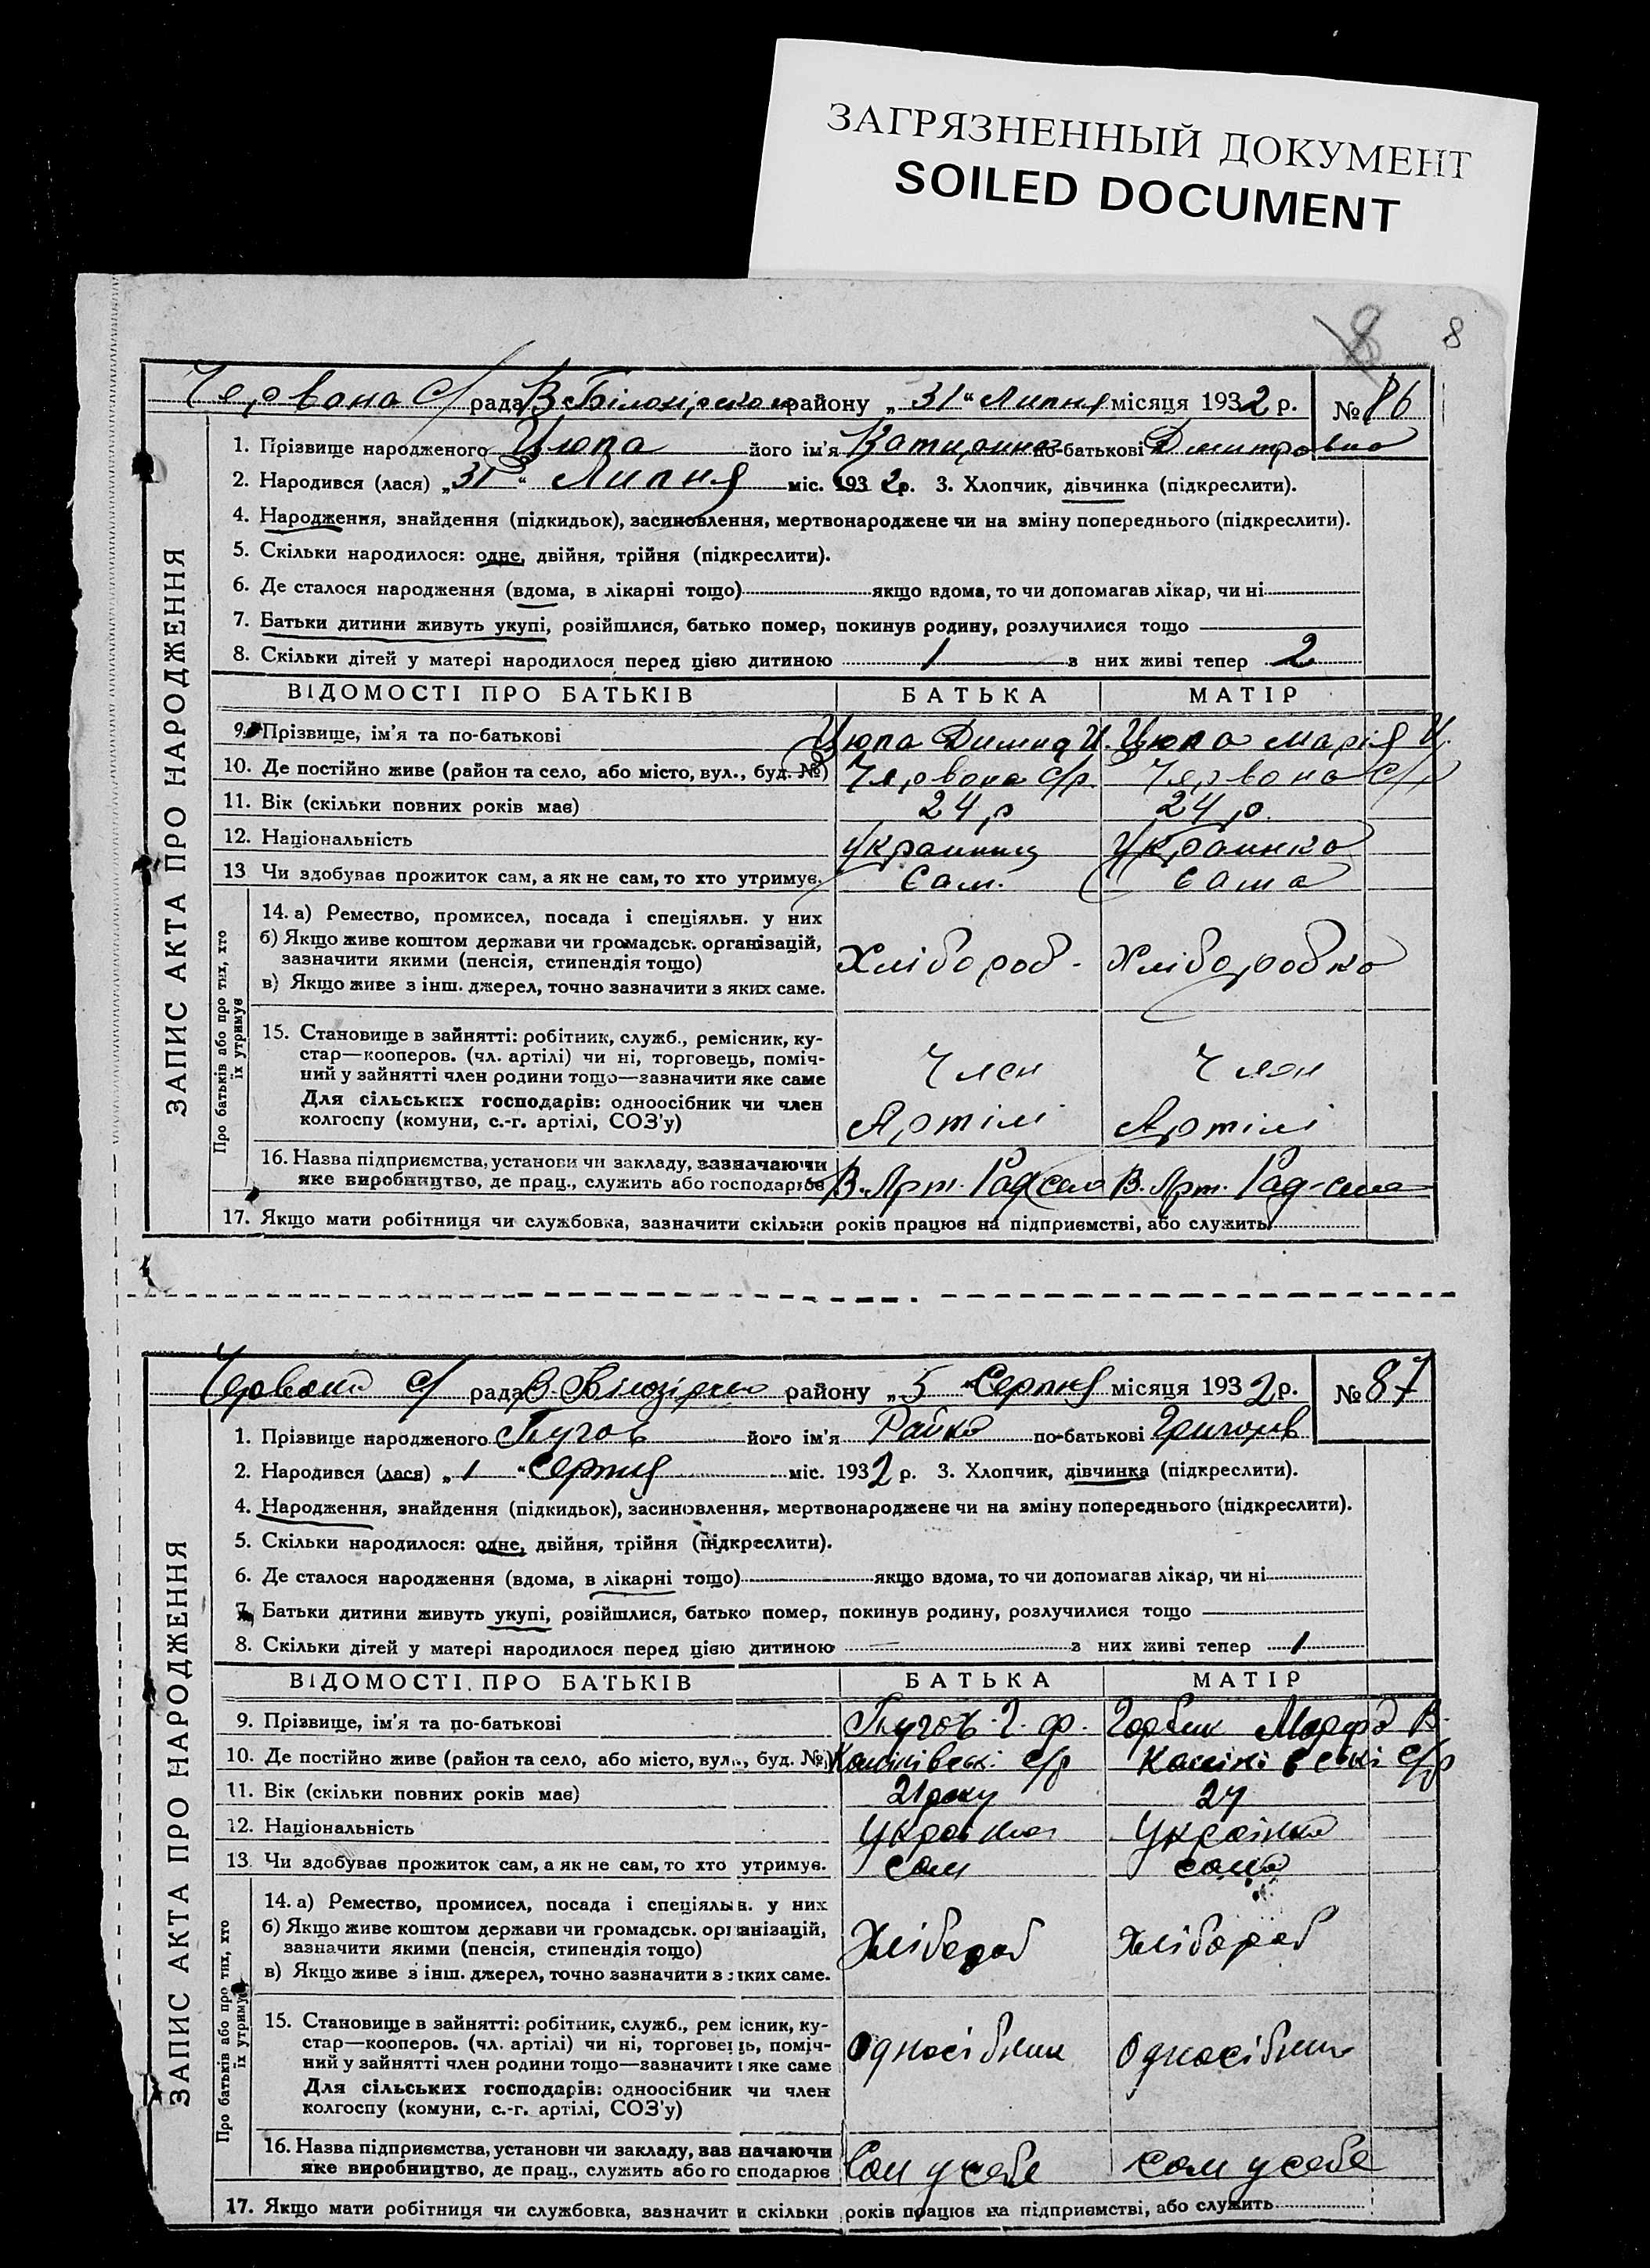 ЗАГРЯЗНЕННЫЙ ДОКУМЕНТ
SOILED DOCUMENT
8 8
Червона С/ рада В Білозірського району „31“ Липня місяця 1932 р. № 86
ЗАПИС АКТА ПРО НАРОДЖЕННЯ
1. Прізвище народженого Цюпа його ім'я Катирина по-батькові Дмитровна
2. Народився (лася) „31“ Липня міс. 1932 р. 3. Хлопчик, дівчинка (підкреслити).
4. Народження, знайдення (підкидьок), засиновлення, мертвонароджене чи на зміну попереднього (підкреслити).
5. Скільки народилося: одне, двійня, трійня (підкреслити).
6. Де сталося народження (вдома, в лікарні тощо) якщо вдома, то чи допомагав лікар, чи ні
7. Батьки дитини живуть укупі, розійшлися, батько помер, покинув родину, розлучилися тощо
8. Скільки дітей у матері народилося перед цією дитиною 1 з них живі тепер 2
ВІДОМОСТІ ПРО БАТЬКІВ БАТЬКА МАТІР
9. Прізвище, ім'я та по-батькові Цюпа И. Цюпа Марія И.
10. Де постійно живе (район та село, або місто, вул., буд. №) Червона с/р. Червона с/р
11. Вік (скільки повних років має) 24 р 24 р.
12. Національність Украинец Украинка
13 Чи здобуває прожиток сам, а як не сам, то хто утримує. Сам. Сама
Про батьків або про тих, хто
їх утримує
14. а) Ремество, промисел, посада і спеціяльн. у них
б) Якщо живе коштом держави чи громадськ. організацій,
зазначити якими (пенсія, стипендія тощо) Хлібороб - Хліборобка
в) Якщо живе з інш. джерел, точно зазначити з яких саме.
15. Становище в зайнятті: робітник, служб., ремісник, ку-
стар—кооперов. (чл. артілі) чи ні, торговець, поміч-
ний у зайнятті член родини тощо—зазначити яке саме Член Член
Для сільських господарів: одноосібник чи член
колгоспу (комуни, с.-г. артілі, СОЗ'у) Артілі Артілі
16. Назва підприємства, установи чи закладу, зазначаючи
яке виробництво, де прац., служить або господарює В. Арт. Рад село В. Арт. Рад-село
17. Якщо мати робітниця чи службовка, зазначити скільки років працює на підприємстві, або служить
Червона с/ рада В. Білозірського району „5“ Серпня місяця 1932 р. № 87
ЗАПИС АКТА ПРО НАРОДЖЕННЯ
1. Прізвище народженого Пугов його ім'я по-батькові Григорів
2. Народився (лася) „1“ Серпня міс. 1932 р. 3. Хлопчик, дівчинка (підкреслити).
4. Народження, знайдення (підкидьок), засиновлення, мертвонароджене чи на зміну попереднього (підкреслити).
5. Скільки народилося: одне, двійня, трійня (підкреслити).
6. Де сталося народження (вдома, в лікарні тощо) якщо вдома, то чи допомагав лікар, чи ні
7. Батьки дитини живуть укупі, розійшлися, батько помер, покинув родину, розлучилися тощо
8. Скільки дітей у матері народилося перед цією дитиною — з них живі тепер 1
ВІДОМОСТІ ПРО БАТЬКІВ БАТЬКА МАТІР
9. Прізвище, ім'я та по-батькові Пугов Г. Ф. Марфа В.
10. Де постійно живе (район та село, або місто, вул., буд. №) с/р с/р
11. Вік (скільки повних років має) 21 року
12. Національність Українка
13. Чи здобуває прожиток сам, а як не сам, то хто утримує. сам сама
Про батьків або про тих, хто
їх утримує
14. а) Ремество, промисел, посада і спеціяльн. у них
б) Якщо живе коштом держави чи громадськ. організацій,
зазначити якими (пенсія, стипендія тощо) Хлібороб Хлібороб
в) Якщо живе з інш. джерел, точно зазначити з яких саме.
15. Становище в зайнятті: робітник, служб., ремісник, ку-
стар—кооперов. (чл. артілі) чи ні, торговець, поміч-
ний у зайнятті член родини тощо—зазначити яке саме Односібник Односібник
Для сільських господарів: одноосібник чи член
колгоспу (комуни, с.-г. артілі, СОЗ'у)
16. Назва підприємства, установи чи закладу, зазначаючи
яке виробництво, де прац., служить або господарює Сам у себе Сам у себе
17. Якщо мати робітниця чи службовка, зазначити скільки років працює на підприємстві, або служить